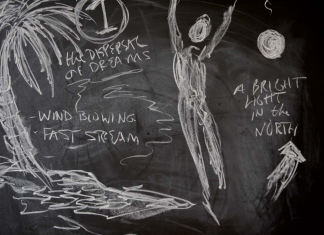 1
the DISPERSAL
OF DREAMS
- WIND BLOWING
- FAST STREAM
A BRIGHT
LIGHT
IN the
NORTH